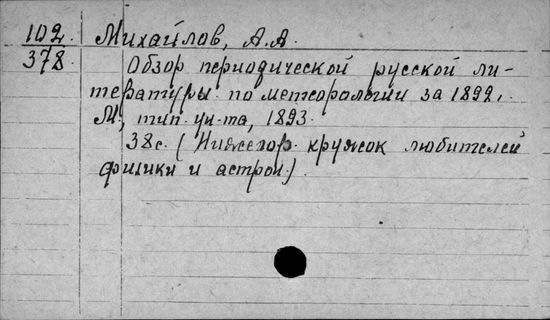 102 Михайлов, А.А.
378 Обзор периодической русской ли-
тературы по метеорологии за 1892.
М., тип. ун-та, 1893.
38с. (Нижегор. кружок любителей
физики и астрон.)